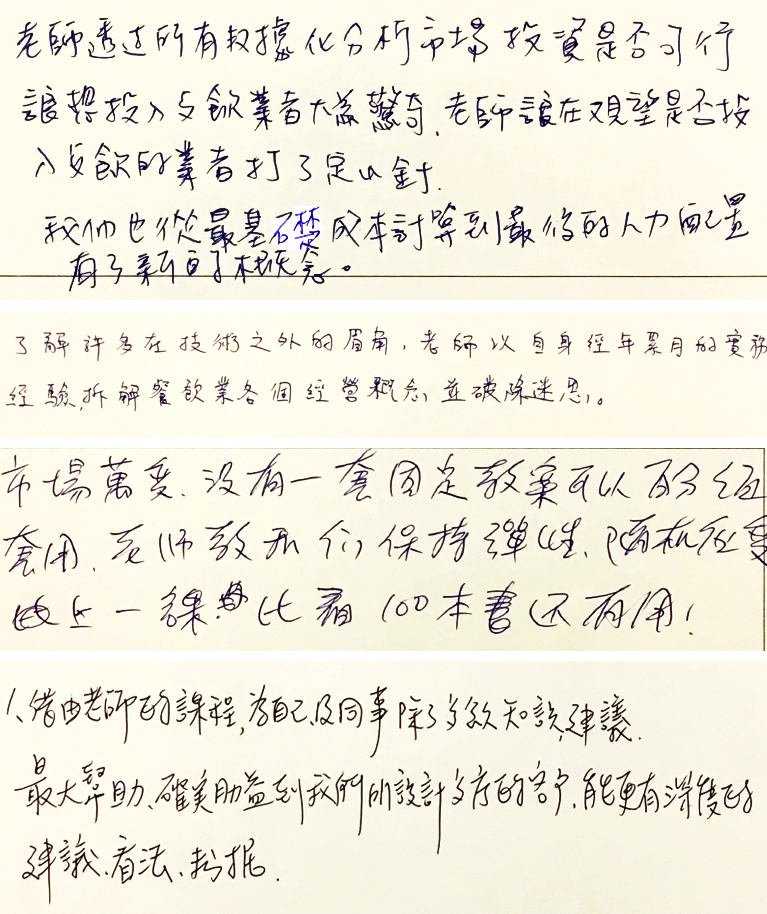 老師透过所有数據化分析市場投資是否可行
讓想投入歺飲業者大為驚奇,老師讓在观望是否投
入歺飲的業者打了定心針.
我们也從最基礎成本計算到最後的人力配置
有了新的概念。
了解許多在技術之外的眉角,老師以自身經年累月的實務
經驗,拆解餐飲業各個經營概念,並破除迷思。
市場萬变.没有一套固定教案可以百分
套用.老师教我们保持彈性.隨机应變
一課 比看100本書还有用!
1.借由老師的課程,為自己及同事 知識建議.
最大幫助、確实助益到我們所設計 的客户,能更有深度的
建議、看法、